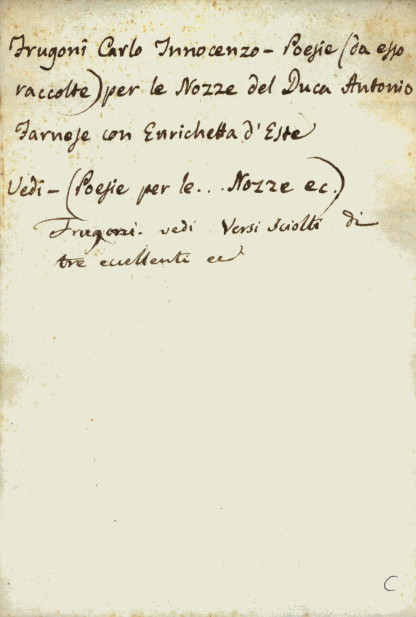 Frugoni Carlo Innocenzo - Poesie (da esso
raccolte) per le Nozze del Duca Antonio
Farnese con Enrichetta d'Este
Vedi - (Poesie per le... Nozze ec.)
Frugoni. vedi Versi Sciolti di
tre eccellenti ec
C